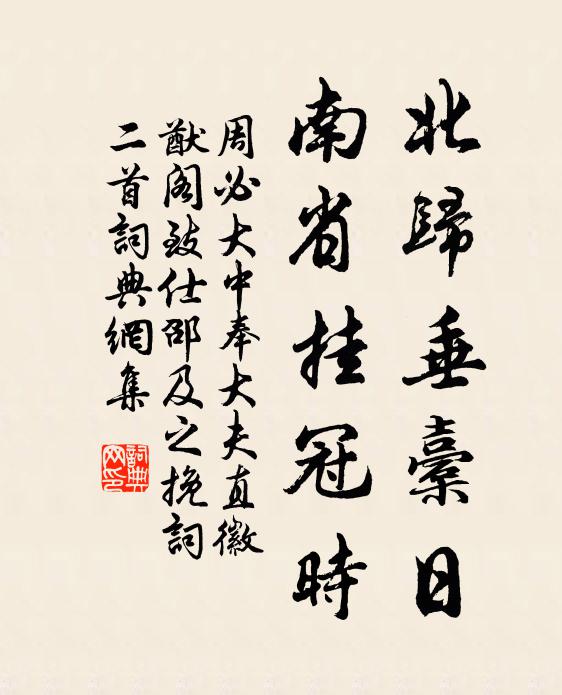 北歸垂橐日
南省挂冠時
周必大中奉大夫直徽
猷阁致仕邵及之挽詞
二首詞典網集
詞典網印